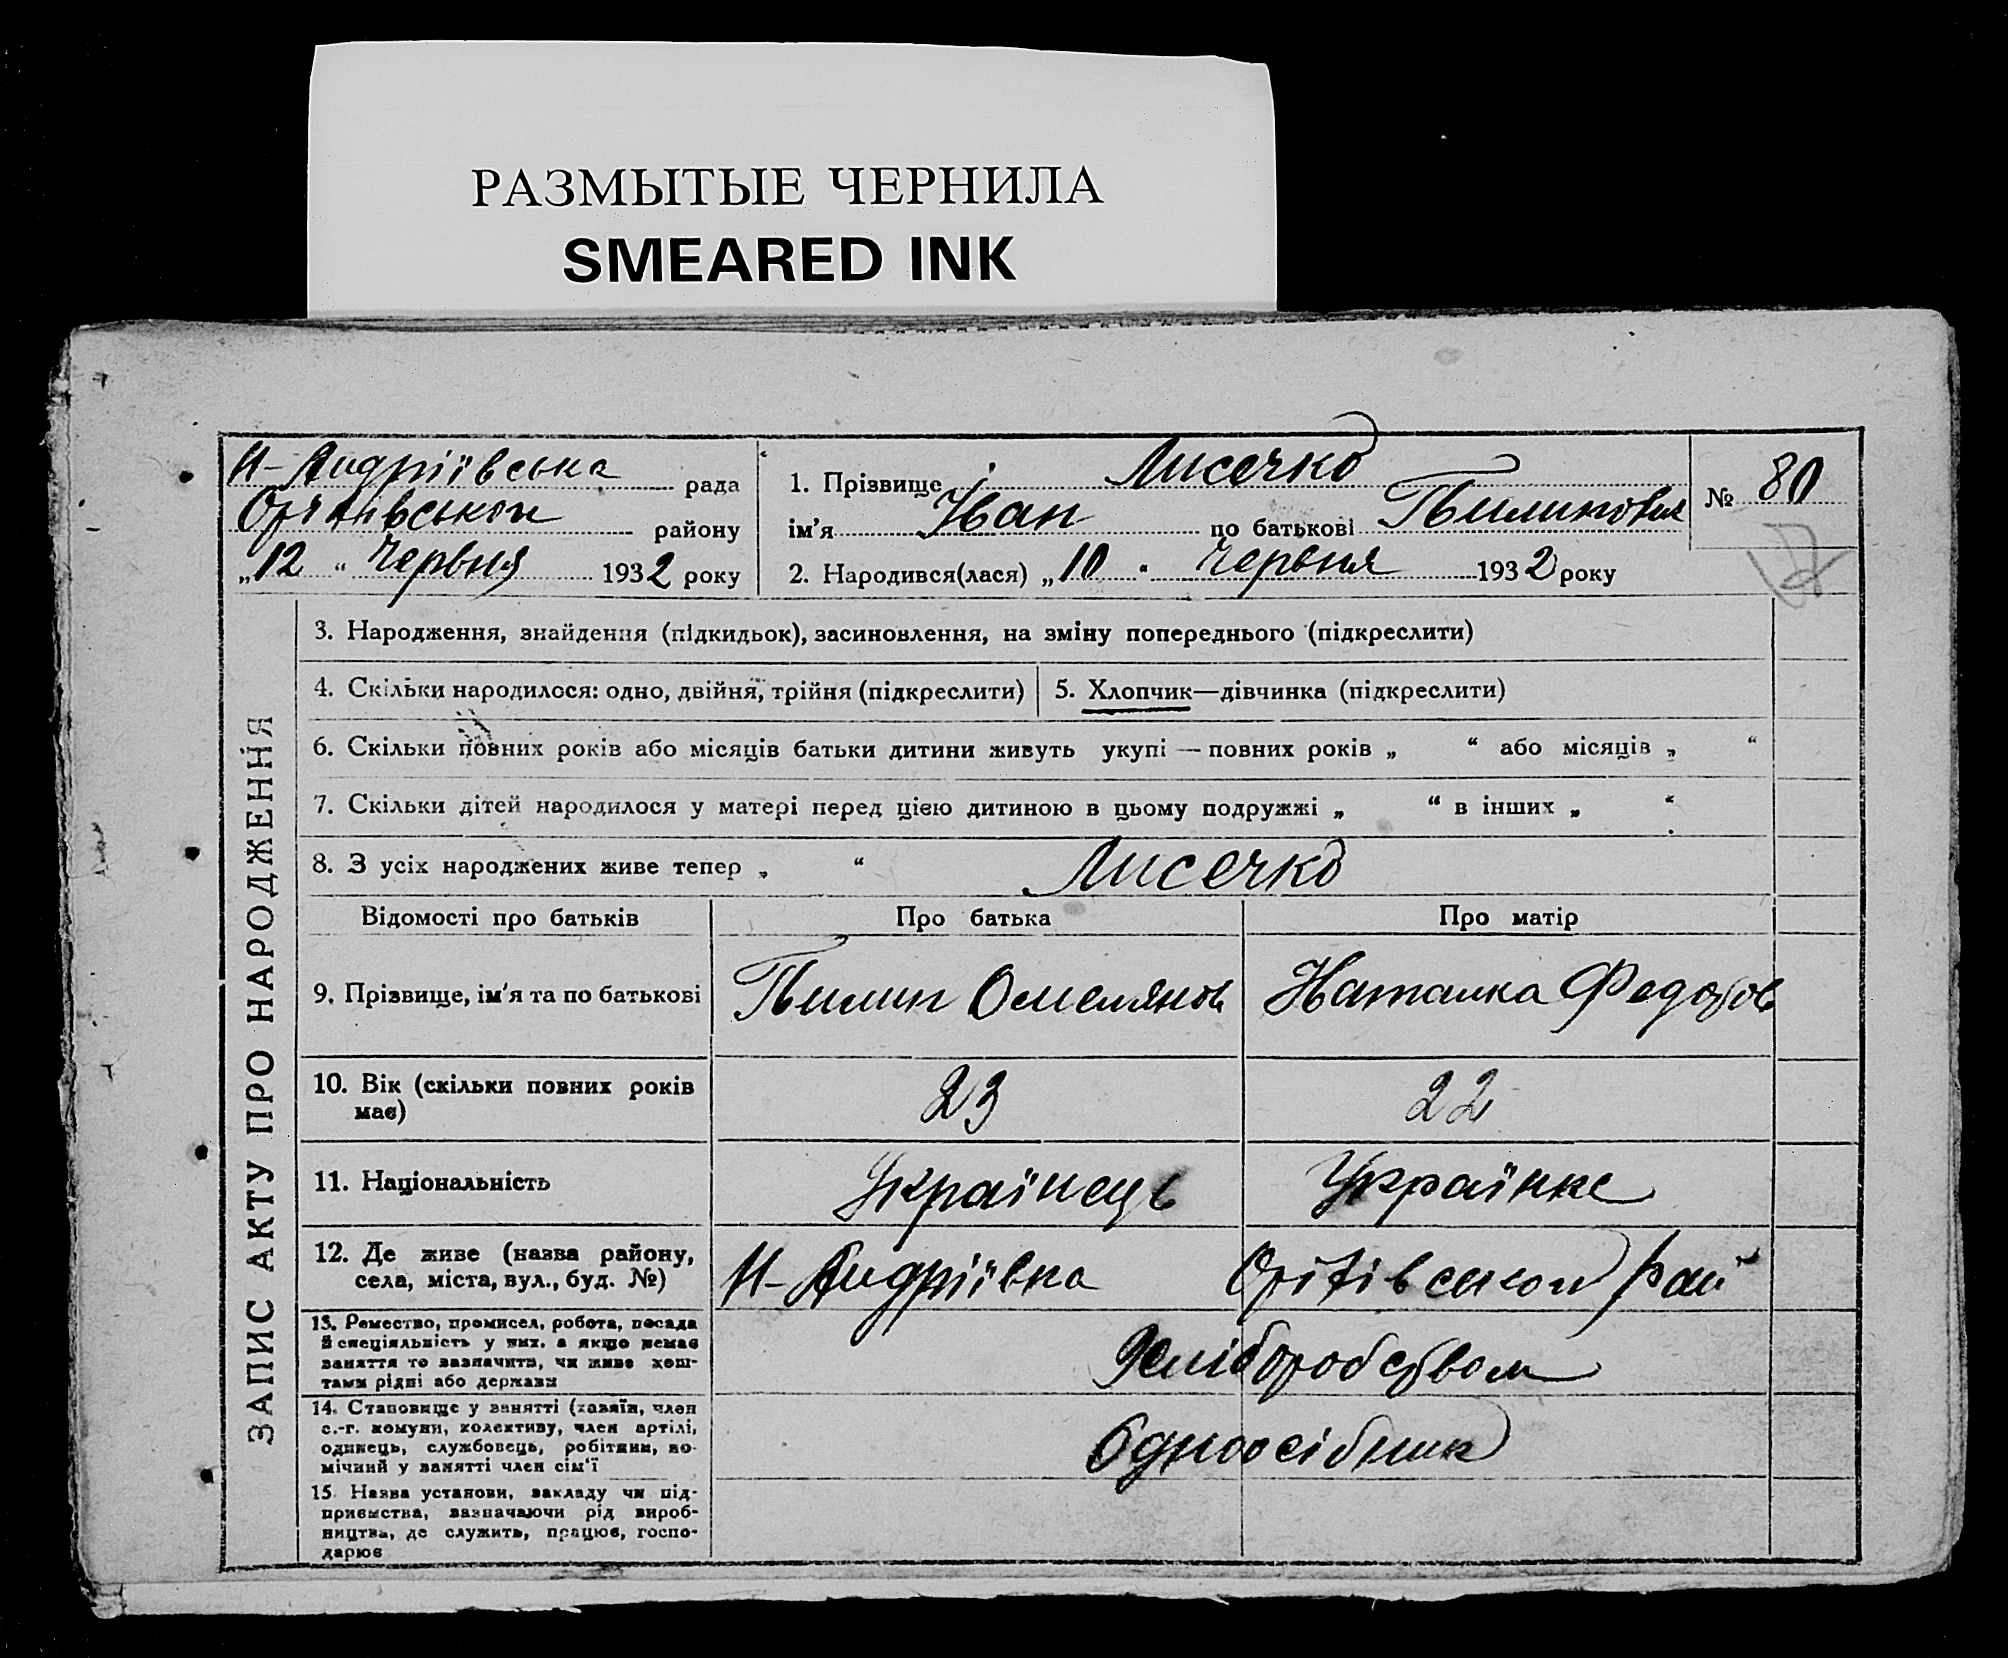 РАЗМЫТЫЕ ЧЕРНИЛА
SMEARED INK
Н-Андріївська рада
району
„12“ Червня 1932 року
1. Прізвище Лисечко
ім’я Іван по батькові Пилипович
2. Народився(лася) „10“ Червня 1932 року
№ 80
ЗАПИС АКТУ ПРО НАРОДЖЕННЯ
3. Народження, знайдення (підкидьок), засиновлення, на зміну попереднього (підкреслити)
4. Скільки народилося: одно, двійня, трійня (підкреслити)
5. Хлопчик—дівчинка (підкреслити)
6. Скільки повних років або місяців батьки дитини живуть укупі — повних років „ “ або місяців „ “
7. Скільки дітей народилося у матері перед цією дитиною в цьому подружжі „ “ в інших „ “
8. З усіх народжених живе тепер „ “ Лисечко
Відомості про батьків Про батька Про матір
9. Прізвище, ім’я та по батькові Пилип Омелянов Наталка Федоров
10. Вік (скільки повних років
має) 23 22
11. Національність Українець Українка
12. Де живе (назва району,
села, міста, вул., буд. №) Н-Андріївка рай
13. Ремество, промисел, робота, посада
й спеціяльність у них, а якщо немає
заняття то зазначити, чи живе кош-
тами рідні або держави
Хліборобством
14. Становище у занятті (хазяїн, член
с.-г. комуни, колективу, член артілі,
одинець, службовець, робітник, по-
мічний у занятті член сім’ї
Одноосібник
15. Назва установи, закладу чи під-
приємства, зазначаючи рід вироб-
ництва, де служить, працює, госпо-
дарює